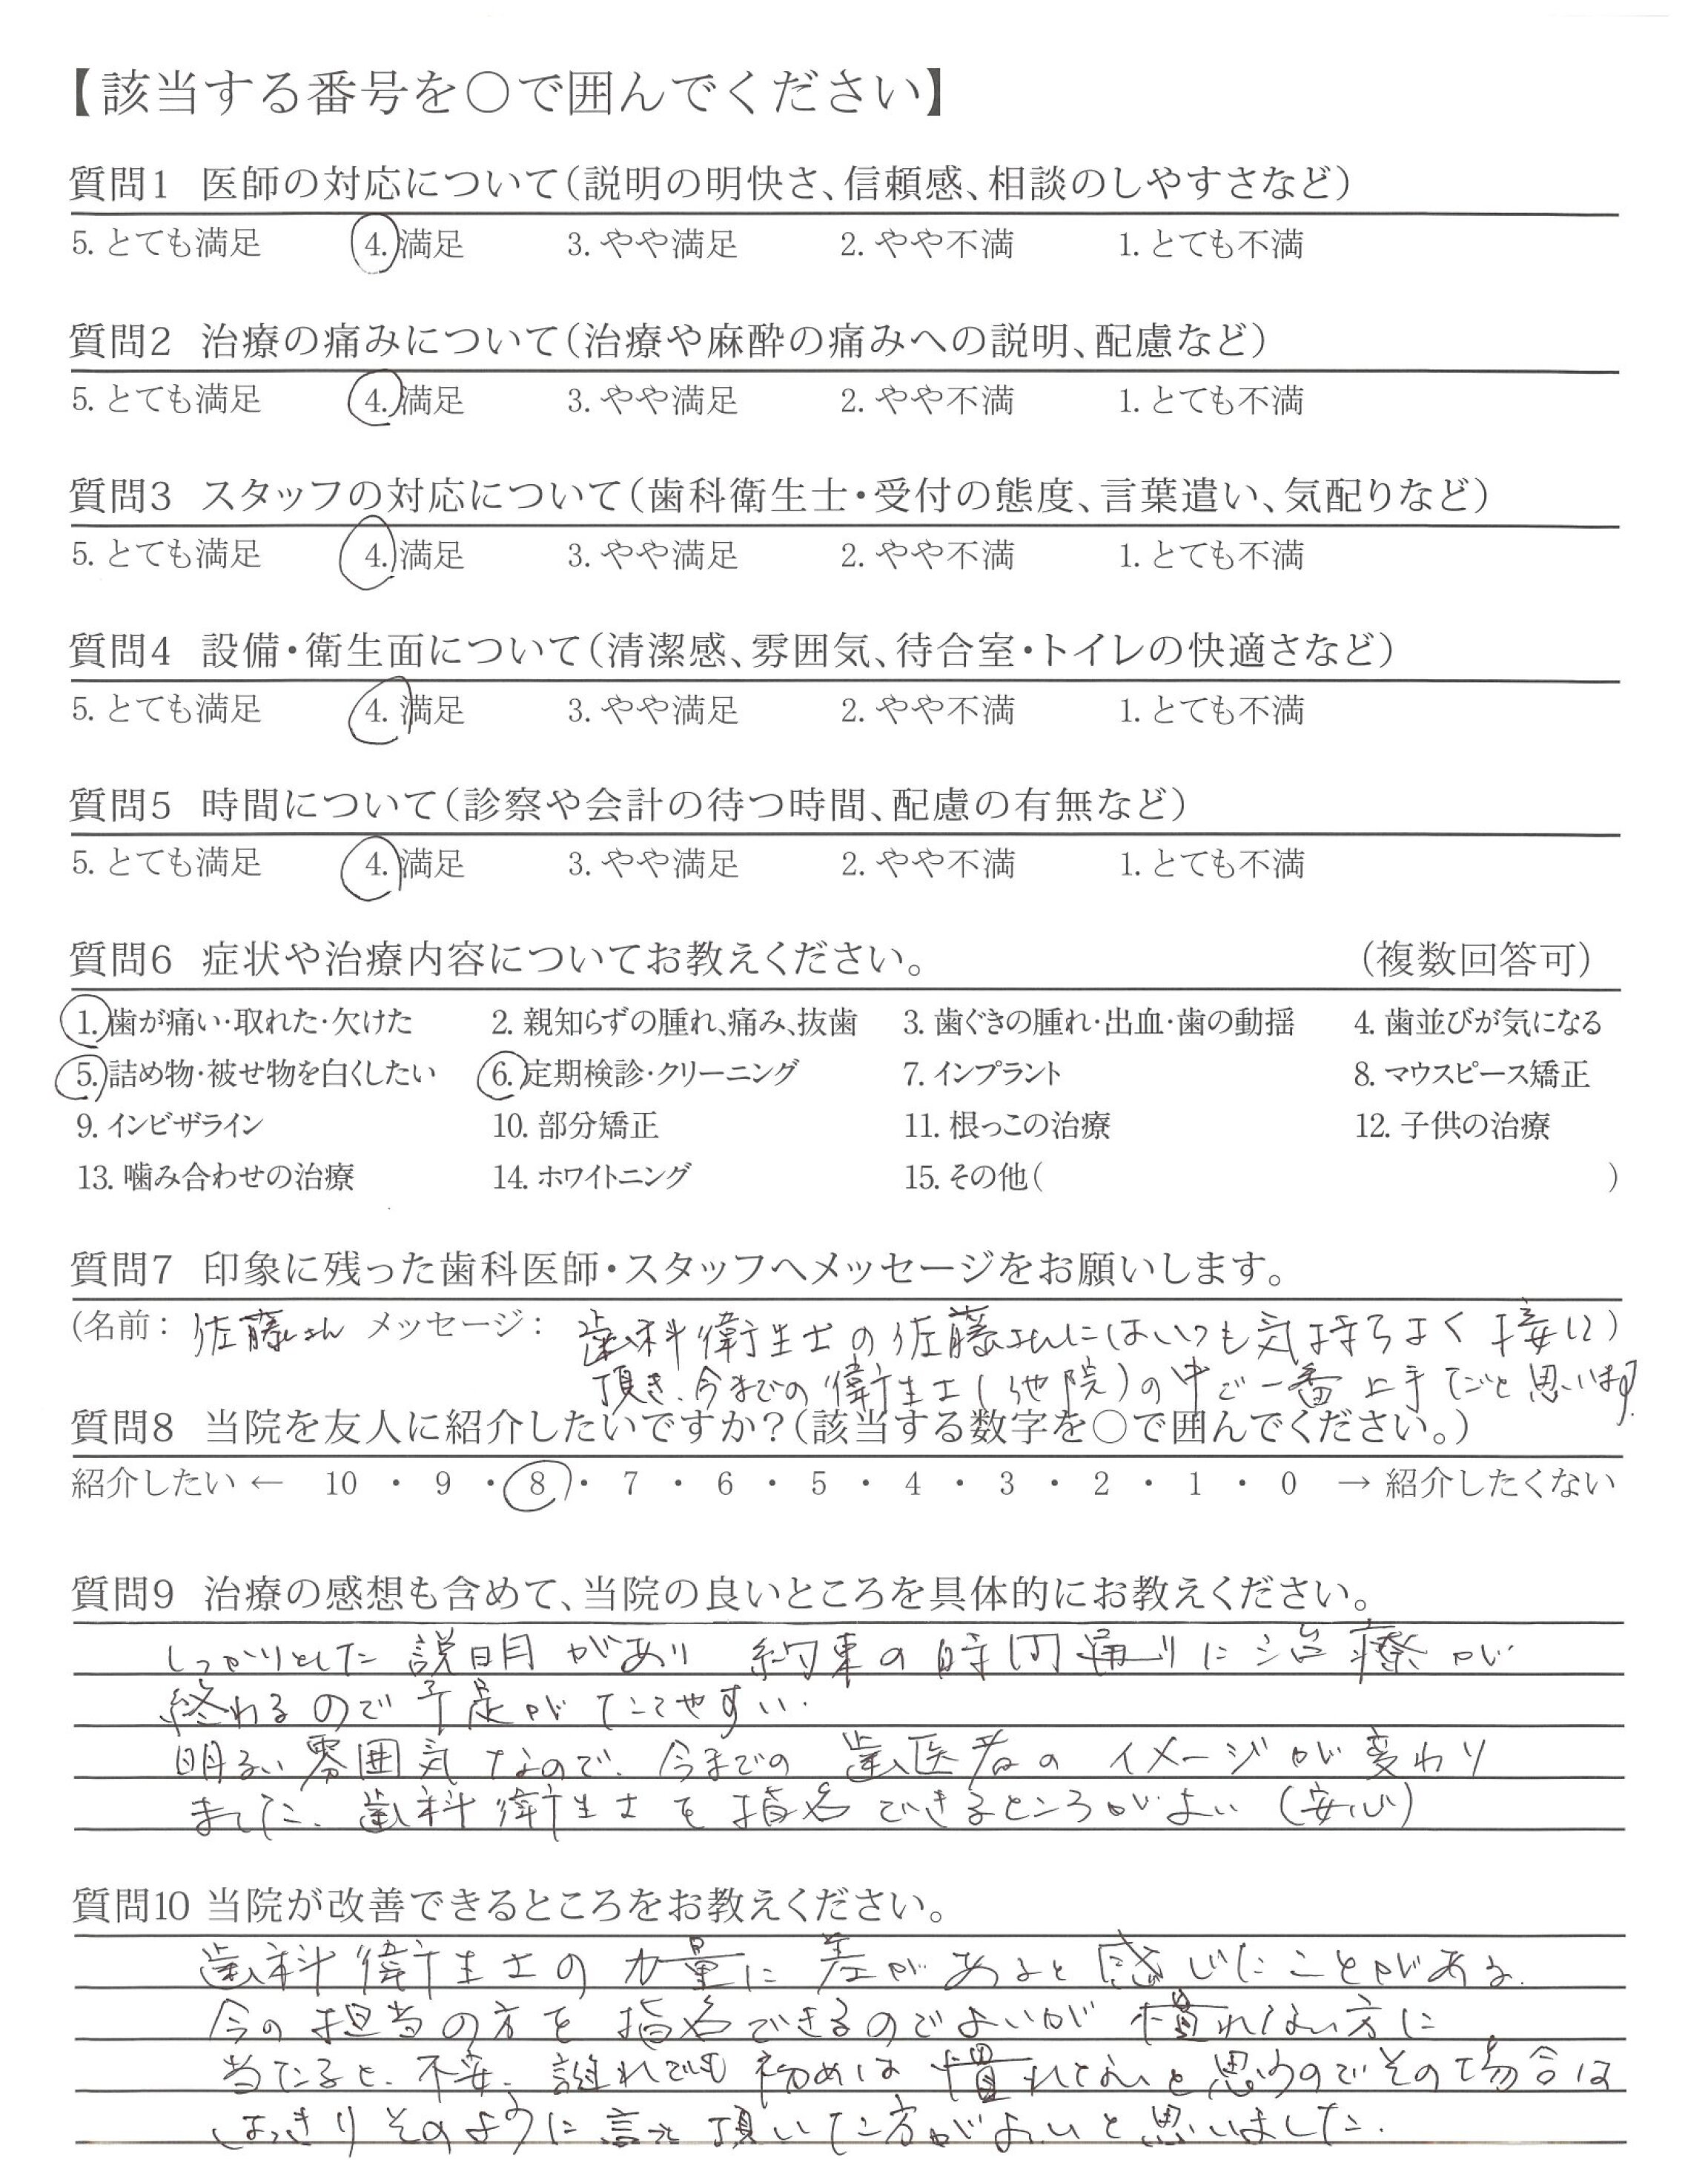 【該当する番号を〇で囲んでください】
質問1 医師の対応について(説明の明快さ、信頼感、相談のしやすさなど)
5. とても満足 4. 満足 3. やや満足 2. やや不満 1. とても不満
質問2 治療の痛みについて(治療や麻酔の痛みへの説明、配慮など)
5. とても満足 4. 満足 3. やや満足 2. やや不満 1. とても不満
質問3 スタッフの対応について(歯科衛生士・受付の態度、言葉遣い、気配りなど)
5. とても満足 4. 満足 3. やや満足 2. やや不満 1. とても不満
質問4 設備・衛生面について(清潔感、雰囲気、待合室・トイレの快適さなど)
5. とても満足 4. 満足 3. やや満足 2. やや不満 1. とても不満
質問5 時間について(診察や会計の待つ時間、配慮の有無など)
5. とても満足 4. 満足 3. やや満足 2. やや不満 1. とても不満
質問6 症状や治療内容についてお教えください。 (複数回答可)
1. 歯が痛い・取れた・欠けた 2. 親知らずの腫れ、痛み、抜歯 3. 歯ぐきの腫れ・出血・歯の動揺 4. 歯並びが気になる
5. 詰め物・被せ物を白くしたい 6. 定期検診・クリーニング 7. インプラント 8. マウスピース矯正
9. インビザライン 10. 部分矯正 11. 根っこの治療 12. 子供の治療
13. 噛み合わせの治療 14. ホワイトニング 15. その他( )
質問7 印象に残った歯科医師・スタッフへメッセージをお願いします。
(名前: 佐藤さん メッセージ: 歯科衛生士の佐藤さんにはいつも気持ちよく接して)
頂き、今までの衛生士(他院)の中で一番上手だと思います。
質問8 当院を友人に紹介したいですか?(該当する数字を〇で囲んでください。)
紹介したい ← 10 ・ 9 ・ 8 ・ 7 ・ 6 ・ 5 ・ 4 ・ 3 ・ 2 ・ 1 ・ 0 → 紹介したくない
質問9 治療の感想も含めて、当院の良いところを具体的にお教えください。
しっかりとした説明があり 約束の時間通りに治療が
終わるので予定がたてやすい.
明るい雰囲気なので、今までの歯医者のイメージが変わり
ました。歯科衛生士を指名できるところがよい (安心)
質問10 当院が改善できるところをお教えください。
歯科衛生士の力量に差があると感じたことがある.
今の担当の方を指名できるのでよいが 慣れない方に
当たると、不安. 誰れでも初めは慣れてないと思うのでその場合は
はっきりそのように言って頂いた方がよいと思いました.